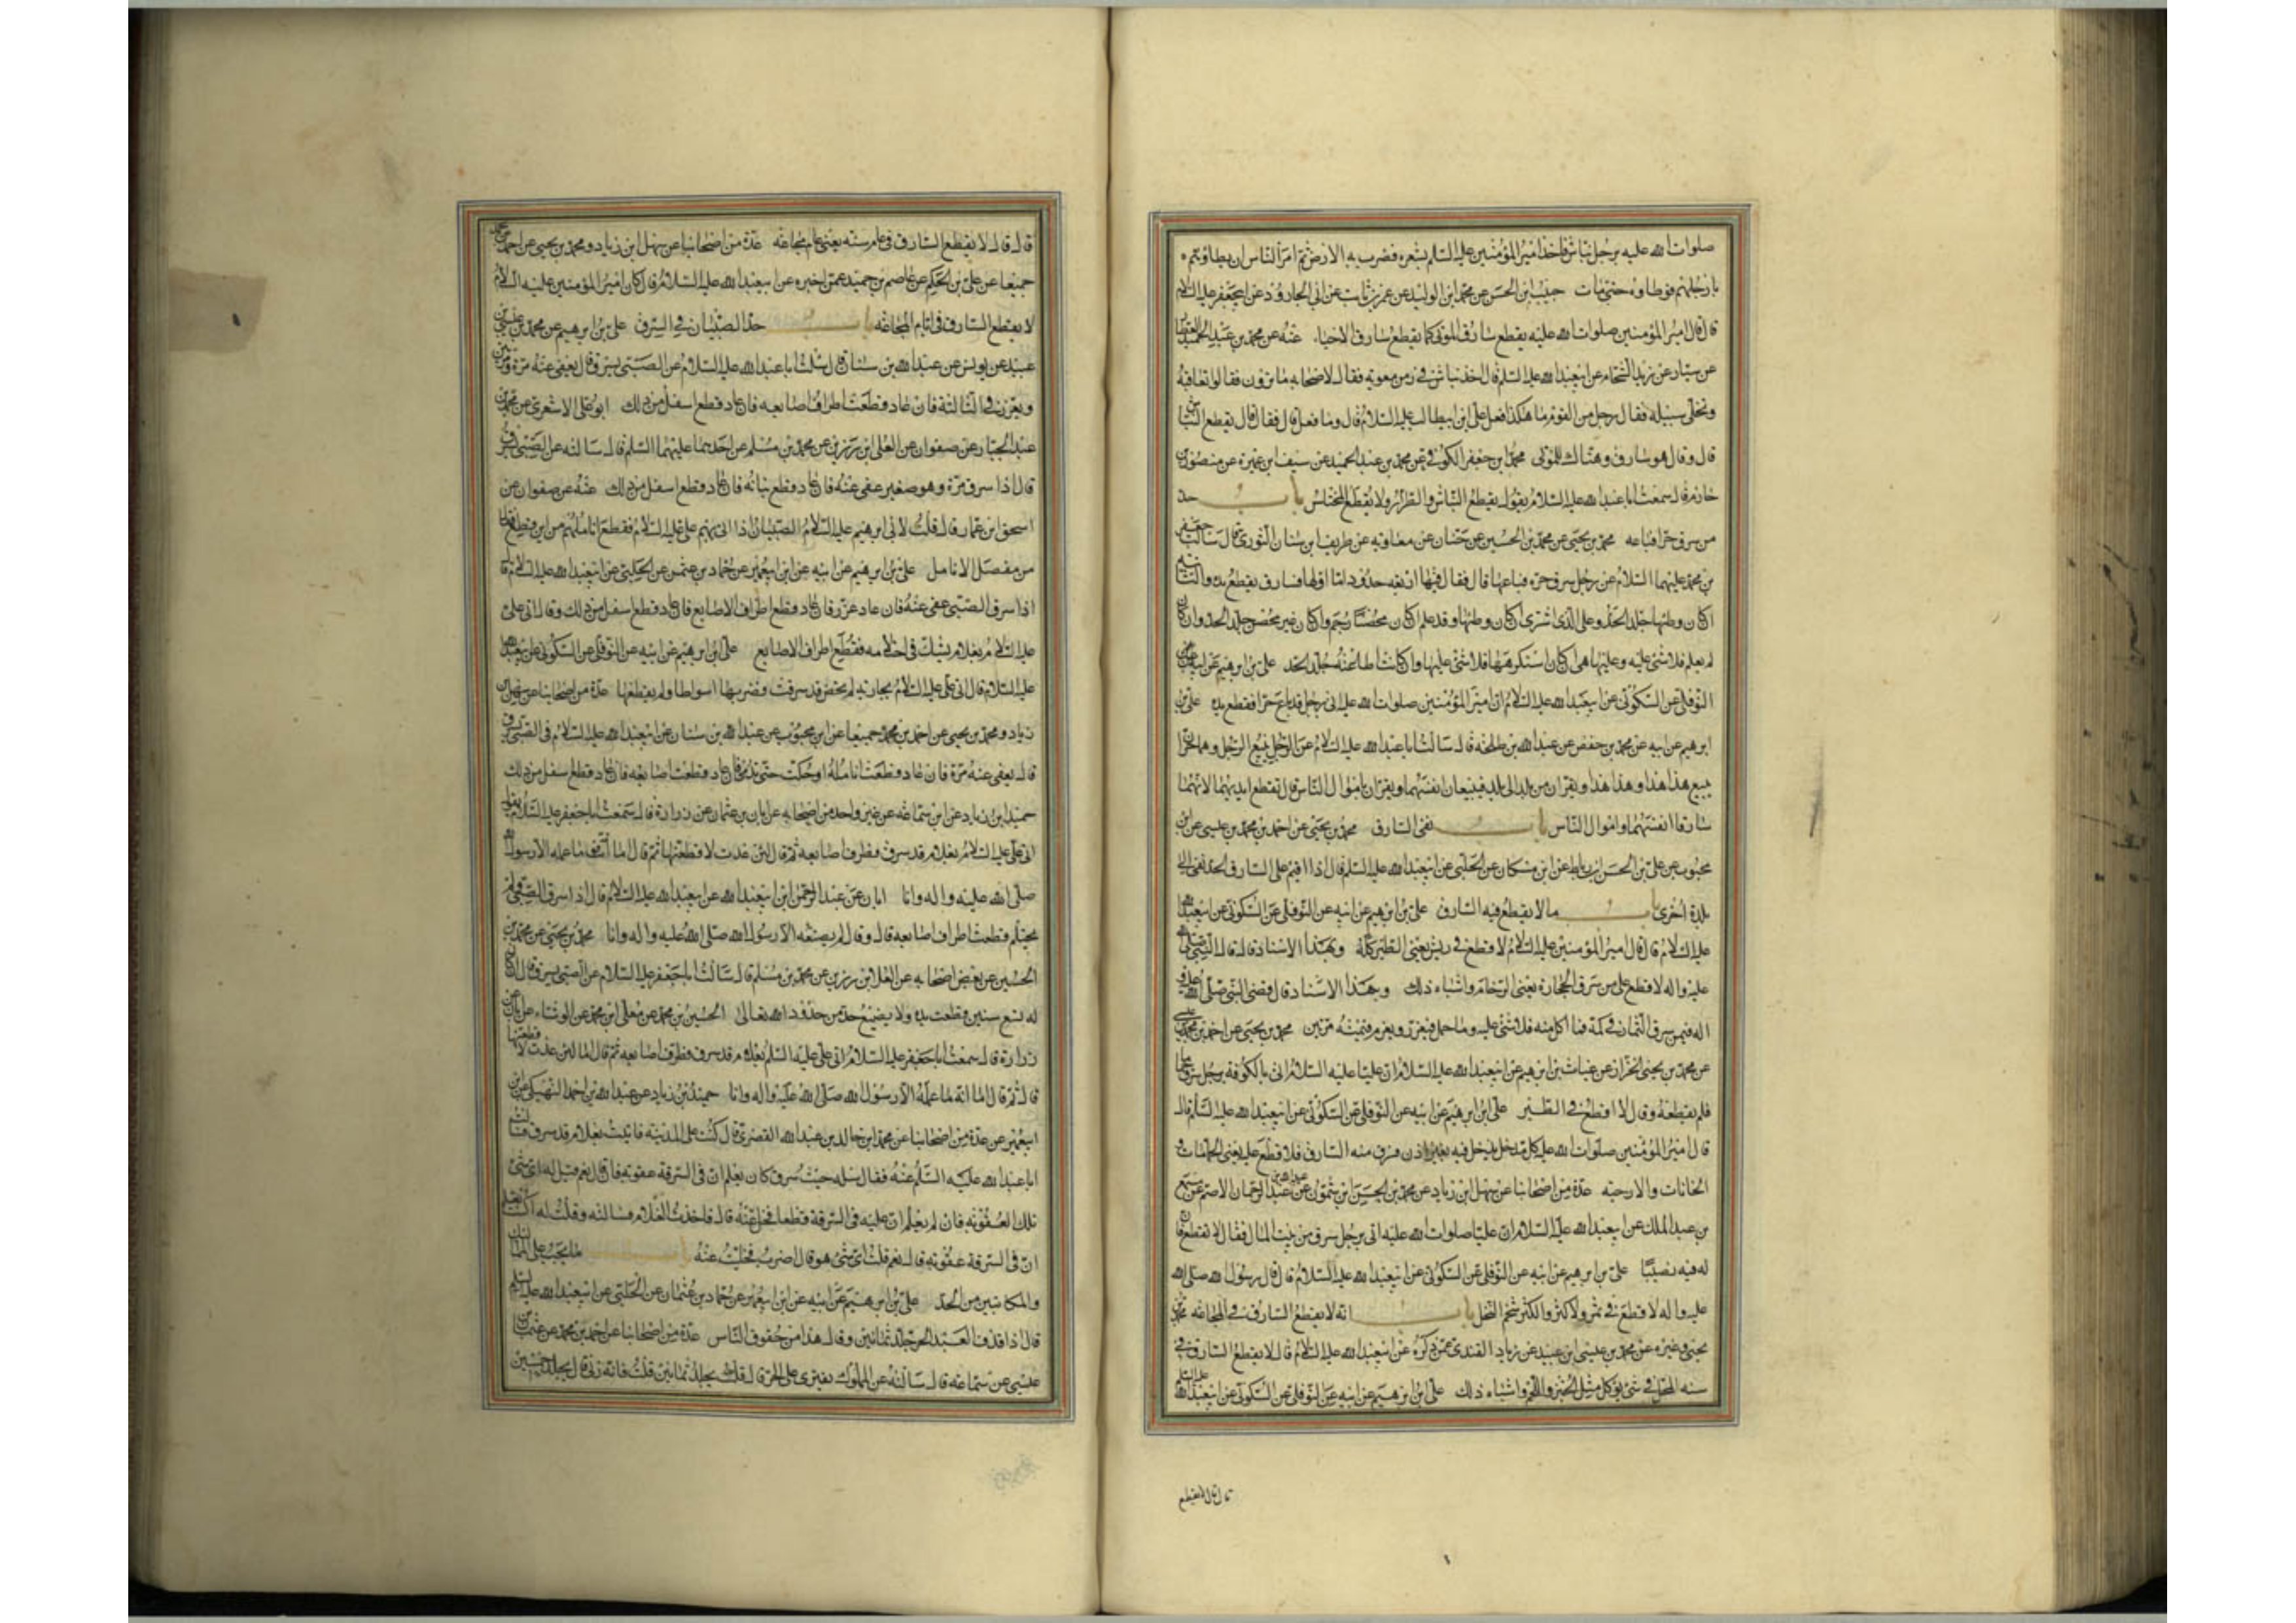 صلوات الله عليه برجل نباش فاخذ امير المؤمنين عليه السلم بشعره فضرب به الارض ثم امر الناس ان يطاؤهم
بارجلهم فوطاوه حتى مات حبيب ابن الحسن عن محمد ابن الوليد عن عمرو بن ثابت عن ابي الجارود عن ابيجعفر عليه السلام
قال قال امير المؤمنين صلوات الله عليه يقطع سارق الموتى كما يقطع سارق الاحياء عنه عن محمد بن عبد الحميد العطار
عن سيار عن زيد الشحام عن ابيعبد الله عليه السلم قال اخذ نباش في زمن معوية فقال لاصحابه ما ترون فقالوا تعاقبه
وتخلى سبيله فقال رجل من القوم ما هكذا فعل علي ابن ابيطالب عليه السلام قال وما فعل قال فقال قال يقطع النباش
قال وقال هو سارق وهتاك للموتى محمد ابن جعفر الكوفي عن محمد بن عبد الحميد عن سيف ابن عميرة عن منصور بن
حازم قال سمعت ابا عبد الله عليه السلام يقول يقطع النباش والطرار ولا يقطع المختلس باب حد
من سرق حرا فباعه محمد بن يحيى عن محمد بن الحسين عن حنان عن معاوية عن طريف ابن سنان الثوري قال سالت جعفر
بن محمد عليهما السلام عن رجل سرق حرة فباعها قال فقال فيها اربعة حدود اما اولها فسارق يقطع يده والثانية
ان كان وطئها جلد الحد وعلى الذي اشترى ان كان وطئها وقد علم ان كان محصنا رجم وان كان غير محصن جلد الحد وان كان
لم يعلم فلا شئ عليه وعليها هي ان كان استكرهها فلا شئ عليها وان كانت اطاعته جلد الحد علي بن ابرهيم عن ابيه عن
النوفلي عن السكوني عن ابيعبد الله عليه السلام ان امير المؤمنين صلوات الله عليه اتى برجل قد باع حرا فقطع يده علي بن
ابرهيم عن ابيه عن محمد بن جعفر عن عبد الله بن طلحة قال سالت ابا عبد الله عليه السلام عن الرجل يبيع الرجل وهما حران
يبيع هذا هذا وهذا هذا ويفران من بلد الى بلد فيبيعان انفسهما ويفران باموال الناس قال تقطع ايديهما لانهما
سارقا انفسهما واموال الناس باب نفي السارق محمد بن يحيى عن احمد بن محمد بن عيسى عن ابن
محبوب عن علي بن الحسن بن رباط عن ابن مسكان عن الحلبي عن ابيعبد الله عليه السلم قال اذا اقيم على السارق الحد نفى الى
بلدة اخرى باب ما لا يقطع فيه السارق علي بن ابرهيم عن ابيه عن النوفلي عن السكوني عن ابيعبد الله
عليه السلام قال قال امير المؤمنين عليه السلام لا قطع في ريش يعني الطير كله وبهذا الاسناد قال قال النبي صلى الله
عليه واله لا قطع على من سرق الحجارة يعني الرخام واشباه ذلك وبهذا الاسناد قال قضى النبي صلى الله عليه و
اله فيمن سرق الثمار في كمه فما اكل منه فلا شئ عليه وما حمل فيعزر ويغرم قيمته مرتين محمد بن يحيى عن احمد بن محمد
عن محمد بن يحيى الخزاز عن غياث بن ابرهيم عن ابيعبد الله عليه السلام ان عليا عليه السلام اتى بالكوفة برجل سرق حماما
فلم يقطعه وقال لا اقطع في الطير علي ابن ابرهيم عن ابيه عن النوفلي عن السكوني عن ابيعبد الله عليه السلم قال
قال امير المؤمنين صلوات الله عليه كل مدخل يدخل فيه بغير اذن فسرق منه السارق فلا قطع عليه يعني الحمامات و
الخانات والارحية عدة من اصحابنا عن سهل ابن زياد عن محمد بن الحسن ابن شمون عن عبد الرحمان الاصم عن مسمع
بن عبد الملك عن ابيعبد الله عليه السلام ان عليا صلوات الله عليه اتى برجل سرق من بيت المال فقال لا تقطع فان
له فيه نصيبا علي بن ابرهيم عن ابيه عن النوفلي عن السكوني عن ابيعبد الله عليه السلام قال قال رسول الله صلى الله
عليه واله لا قطع في ثمر ولا كثر والكثر شحم النخل باب انه لا يقطع السارق في المجاعة محمد بن
يحيى وغيره عن محمد بن عيسى ابن عبيد عن زياد القندي عمن ذكره عن ابيعبد الله عليه السلام قال لا يقطع السارق في
سنة المحل في شئ يؤكل مثل الخبز واللحم واشباه ذلك علي ابن ابرهيم عن ابيه عن النوفلي عن السكوني عن ابيعبد الله عليه السلم
قال قال لا يقطع
قال قال لا يقطع السارق في عام سنة يعني عام مجاعة عدة من اصحابنا عن سهل ابن زياد ومحمد بن يحيى عن احمد بن محمد
جميعا عن علي بن الحكم عن عاصم بن حميد عمن اخبره عن ابيعبد الله عليه السلام قال كان امير المؤمنين عليه السلام
لا يقطع السارق في ايام المجاعة باب حد الصبيان في السرق علي بن ابرهيم عن محمد بن عيسى بن
عبيد عن يونس عن عبد الله بن سنان قال سئلت ابا عبد الله عليه السلام عن الصبي يسرق قال يعفى عنه مرة ومرتين
ويعزر في الثالثة فان عاد قطعت اطراف اصابعه فان عاد قطع اسفل من ذلك ابو علي الاشعري عن محمد بن
عبد الجبار عن صفوان عن العلا ابن رزين عن محمد بن مسلم عن احدهما عليهما السلم قال سالته عن الصبي يسرق
قال اذا سرق مرة وهو صغير عفى عنه فان عاد قطع بنانه فان عاد قطع اسفل من ذلك عنه عن صفوان عن
اسحق ابن عمار قال قلت لابي ابرهيم عليه السلام الصبيان اذا اتى بهم علي عليه السلام فقطع اناملهم من اين قطع فقال
من مفصل الانامل علي بن ابرهيم عن ابيه عن ابن ابيعمير عن حماد بن عثمن عن الحلبي عن ابيعبد الله عليه السلام قال
اذا سرق الصبي عفى عنه فان عاد عزر فان عاد قطع اطراف الاصابع فان عاد قطع اسفل من ذلك وقال اتى علي
عليه السلام بغلام يشك في احتلامه فقطع اطراف الاصابع علي ابن ابرهيم عن ابيه عن النوفلي عن السكوني عن ابيعبد الله
عليه السلام قال اتى علي عليه السلام بجارية لم تحض قد سرقت فضربها اسواطا ولم يقطعها عدة من اصحابنا عن سهل بن
زياد ومحمد بن يحيى عن احمد بن محمد جميعا عن ابن محبوب عن عبد الله بن سنان عن ابيعبد الله عليه السلام في الصبي يسرق
قال يعفى عنه مرة فان عاد قطعت انامله او حكت حتى تدمى فان عاد قطعت اصابعه فان عاد قطع اسفل من ذلك
حميد ابن زياد عن ابن سماعة عن غير واحد من اصحابه عن ابان بن عثمان عن زرارة قال سمعت ابا جعفر عليه السلام يقول
اتى علي عليه السلام بغلام قد سرق فطرف اصابعه ثم قال لئن عدت لاقطعنها ثم قال اما انه ما عمله الا رسول الله
صلى الله عليه واله وانا ابان عن عبد الرحمن ابن ابيعبد الله عن ابيعبد الله عليه السلام قال اذا سرق الصبي ولم
يحتلم قطعت اطراف اصابعه قال وقال لم يصنعه الا رسول الله صلى الله عليه واله وانا محمد بن يحيى عن محمد بن
الحسين عن بعض اصحابه عن العلا ابن رزين عن محمد بن مسلم قال سالت ابا جعفر عليه السلام عن الصبي يسرق قال ان كان
له تسع سنين قطعت يده ولا يضيع حد من حدود الله تعالى الحسين بن محمد عن معلى ابن محمد عن الوشاء عن ابان عن
زرارة قال سمعت ابا جعفر عليه السلام اتى علي عليه السلم بغلام قد سرق فطرف اصابعه ثم قال اما لئن عدت لاقطعنها
قال ثم قال اما انه ما عمله الا رسول الله صلى الله عليه واله وانا حميد بن زياد عن عبد الله بن احمد النهيكي عن ابن
ابيعمير عن عدة من اصحابنا عن محمد ابن خالد بن عبد الله القصري قال كنت على المدينة فاتيت بغلام قد سرق فسالت
ابا عبد الله عليه السلم عنه فقال سله حيث سرق كان يعلم ان في السرقة عقوبة فان قال نعم قيل له اى شئ
تلك العقوبة فان لم يعلم ان عليه في السرقة قطعا فخل عنه قال فاخذت الغلام فسالته وقلت له اكنت تعلم
ان في السرقة عقوبة قال نعم قلت اى شئ هو قال اضرب فخليت عنه باب ما يجب على المماليك
والمكاتبين من الحد علي بن ابرهيم عن ابيه عن ابن ابيعمير عن حماد بن عثمان عن الحلبي عن ابيعبد الله عليه السلم
قال اذا قذف العبد الحر جلد ثمانين وقال هذا من حقوق الناس عدة من اصحابنا عن احمد بن محمد عن عثمان بن
عيسى عن سماعة قال سالته عن المملوك يفترى على الحر قال يجلد ثمانين قلت فانه زنى قال يجلد خمسين